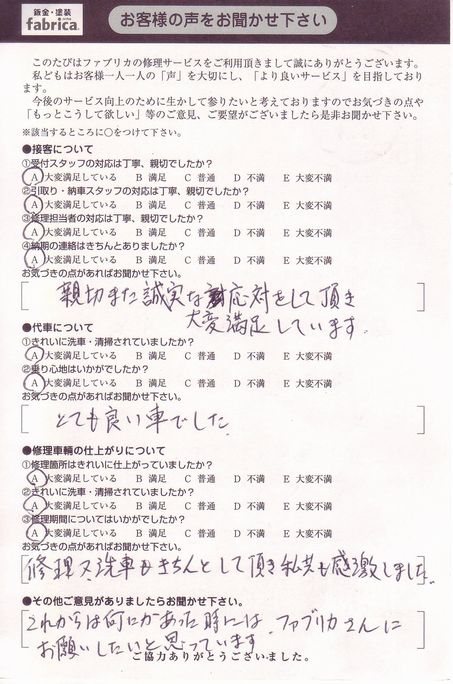 鈑金・塗装
fabrica.
お客様の声をお聞かせ下さい
このたびはファブリカの修理サービスをご利用頂きまして誠にありがとうございます。
私どもはお客様一人一人の「声」を大切にし、「より良いサービス」を目指しており
ます。
今後のサービス向上のために生かして参りたいと考えておりますのでお気づきの点や
「もっとこうして欲しい」等のご意見、ご要望がございましたら是非お聞かせ下さい。
※該当するところに○をつけて下さい。
●接客について
①受付スタッフの対応は丁寧、親切でしたか?
A 大変満足している B 満足 C 普通 D 不満 E 大変不満
②引取り・納車スタッフの対応は丁寧、親切でしたか?
A 大変満足している B 満足 C 普通 D 不満 E 大変不満
③修理担当者の対応は丁寧、親切でしたか?
A 大変満足している B 満足 C 普通 D 不満 E 大変不満
④納期の連絡はきちんとありましたか?
A 大変満足している B 満足 C 普通 D 不満 E 大変不満
お気づきの点があればお聞かせ下さい。
親切また誠実な応対をして頂き
大変満足しています。
●代車について
①きれいに洗車・清掃されていましたか?
A 大変満足している B 満足 C 普通 D 不満 E 大変不満
②乗り心地はいかがでしたか?
A 大変満足している B 満足 C 普通 D 不満 E 大変不満
お気づきの点があればお聞かせ下さい。
とても良い車でした。
●修理車輌の仕上がりについて
①修理箇所はきれいに仕上がっていましたか?
A 大変満足している B 満足 C 普通 D 不満 E 大変不満
②きれいに洗車・清掃されていましたか?
A 大変満足している B 満足 C 普通 D 不満 E 大変不満
③修理期間についてはいかがでしたか?
A 大変満足している B 満足 C 普通 D 不満 E 大変不満
お気づきの点があればお聞かせ下さい。
修理又洗車もきちんとして頂き私共も感激しました。
●その他ご意見がありましたらお聞かせ下さい。
これからは何にかあった時には、ファブリカさんに
お願いしたいと思っています。
ご協力ありがとうございました。